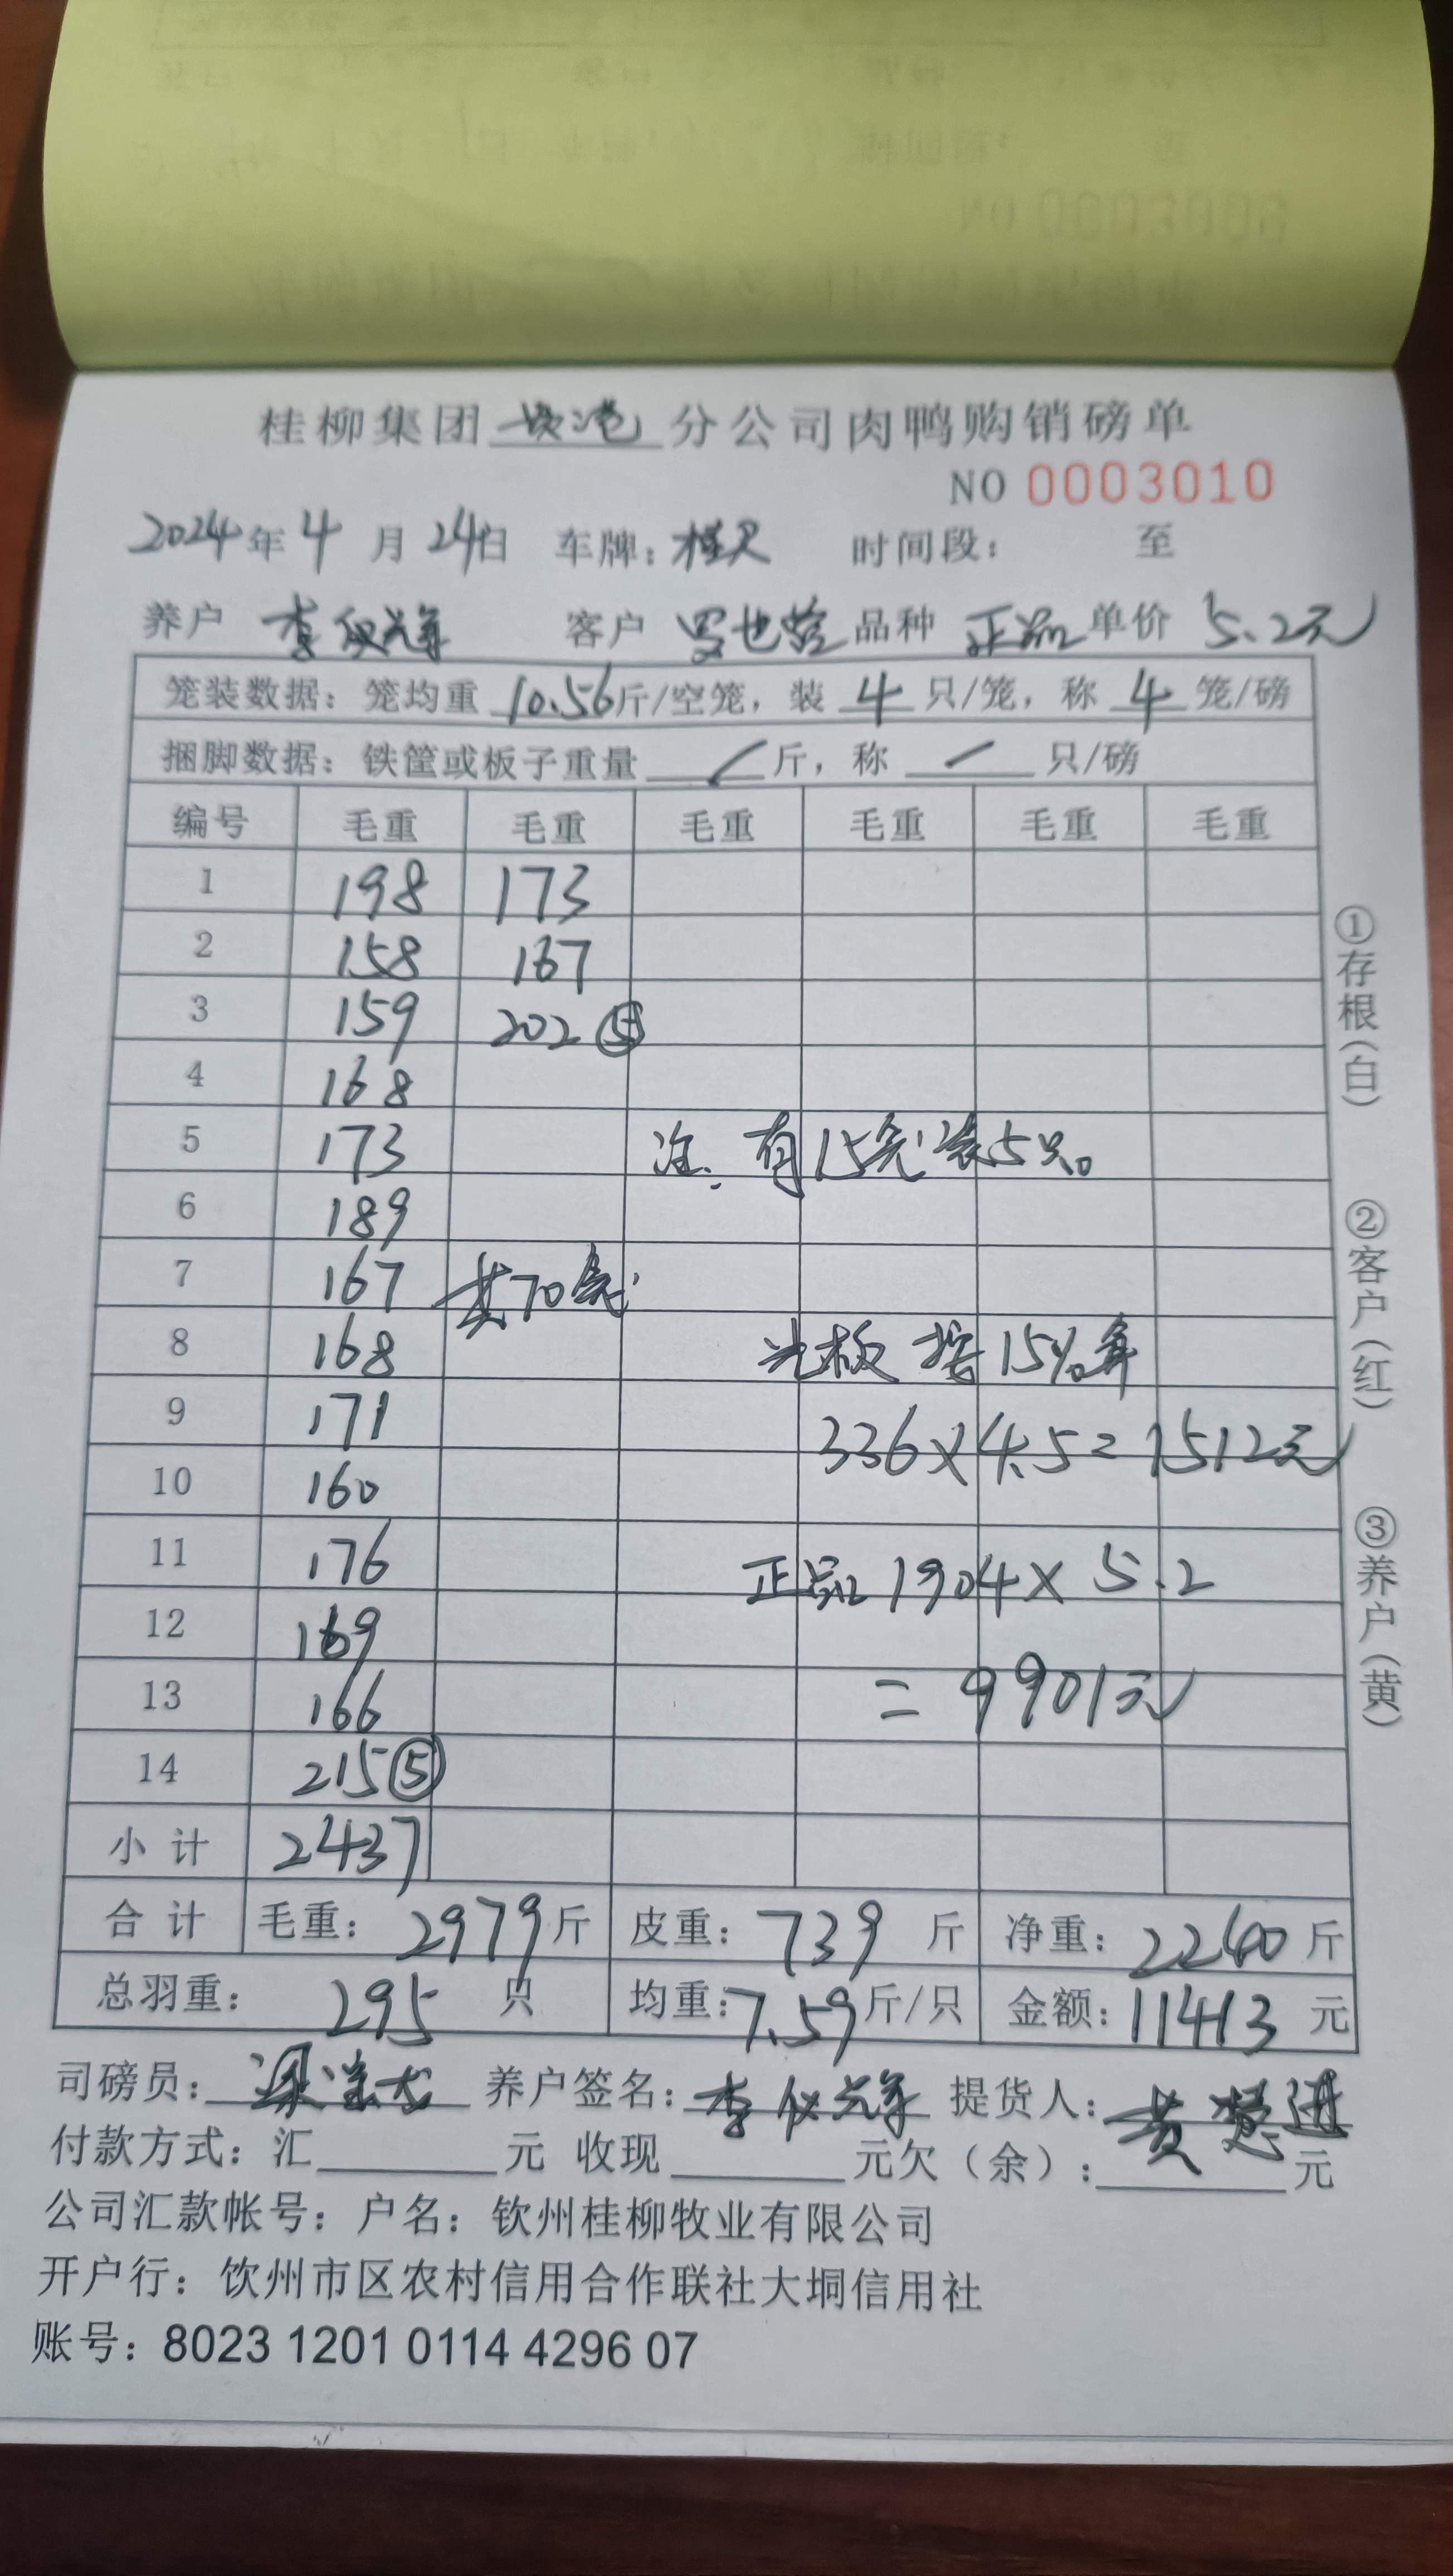 桂柳集团 钦港 分公司肉鸭购销磅单
NO 0003010
2024年 4 月 24日 车牌: 时间段: 至
养户 李仪辉 客户 品种 正品 单价 5.2元
笼装数据: 笼均重 10.56斤/空笼, 装 4 只/笼, 称 4 笼/磅
捆脚数据: 铁筐或板子重量 / 斤, 称 / 只/磅
编号 毛重 毛重 毛重 毛重 毛重 毛重
1 198 173
2 158 167
3 159 202 ⑤
4 168
5 173 注: 有15笼装5只。
6 189
7 167 共70笼
8 168 光板 按15%算
9 171 336×4.5=1512元
10 160
11 176 正品 1904×5.2
12 169
13 166 =9901元
14 215⑤
小 计 2437
合 计 毛重: 2979斤 皮重: 739 斤 净重: 2240 斤
总羽重: 295 只 均重: 7.59斤/只 金额: 11413 元
司磅员: 养户签名: 李仪辉 提货人: 黄慧进
付款方式: 汇 元 收现 元欠(余): 元
公司汇款帐号: 户名: 钦州桂柳牧业有限公司
开户行: 钦州市区农村信用合作联社大垌信用社
账号: 8023 1201 0114 4296 07
①存根(白) ②客户(红) ③养户(黄)